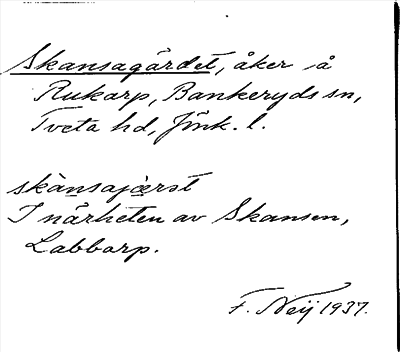 Skansagärdet, åker å
Rukarp, Bankeryds sn,
Tveta hd, Jönk. l.
skànsajæ̀rst
I närheten av Skansen,
Labbarp.
F. Neij 1937.